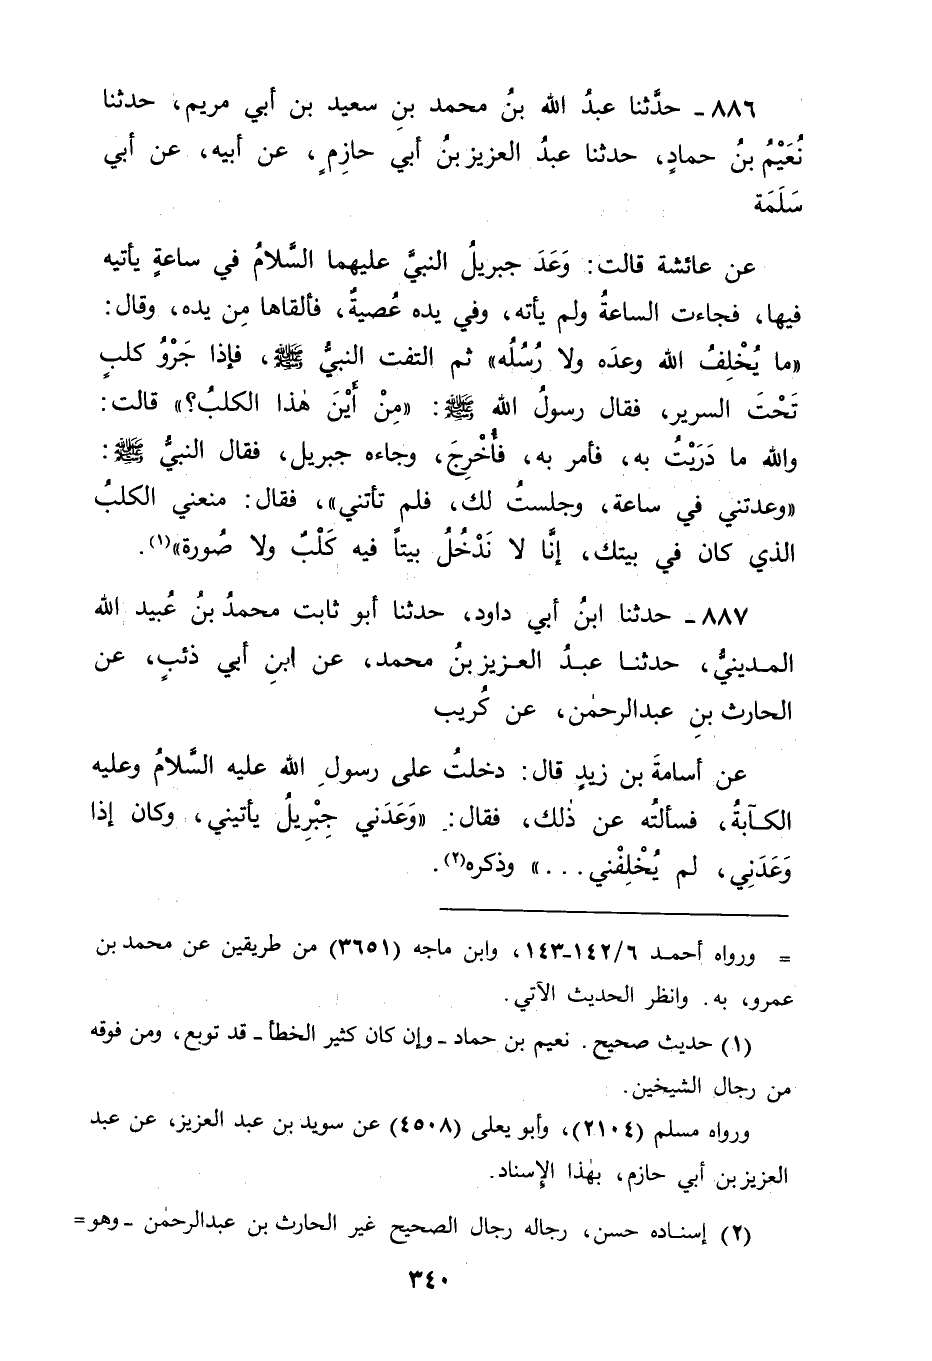 ٨٨٦ ـ حدَّثنا عبدُ الله بنُ محمد بنِ سعيد بن أبي مريم، حدثنا
نُعَيْمُ بنُ حمادٍ، حدثنا عبدُ العزيز بنُ أبي حازِمٍ، عن أبيه، عن أبي
سَلَمَة
عن عائشة قالت: وَعَدَ جبريلُ النبيَّ عليهما السَّلامُ في ساعةٍ يأتيه
فيها، فجاءت الساعةُ ولم يأته، وفي يده عُصيةٌ، فألقاها مِن يده، وقال:
«ما يُخْلِفُ الله وعدَه ولا رُسُلُه» ثم التفت النبيُّ ﷺ، فإذا جَرْوُ كلبٍ
تَحْتَ السرير، فقال رسولُ الله ﷺ: «مِنْ أَيْنَ هٰذا الكلبُ؟» قالت:
والله ما دَرَيْتُ به، فأمر به، فأُخْرِجَ، وجاءه جبريل، فقال النبيُّ ﷺ:
«وعدتني في ساعة، وجلستُ لك، فلم تأتني»، فقال: منعني الكلبُ
الذي كان في بيتك، إنَّا لا نَدْخُلُ بيتاً فيه كَلْبٌ ولا صُورة»(١).
٨٨٧ ـ حدثنا ابنُ أبي داود، حدثنا أبو ثابت محمدُ بنُ عُبيد الله
المدينيُّ، حدثنا عبدُ العزيز بنُ محمد، عن ابنِ أبي ذئبٍ، عن
الحارث بنِ عبدالرحمٰن، عن كُريب
عن أسامةَ بن زيدٍ قال: دخلتُ على رسولِ الله عليه السَّلامُ وعليه
الكآبةُ، فسألتُه عن ذٰلك، فقال: «وَعَدَني جِبْرِيلُ يأتيني، وكان إذا
وَعَدَنِي، لم يُخْلِفْني...» وذكره(٢).
= ورواه أحمد ١٤٢/٦ـ١٤٣، وابن ماجه (٣٦٥١) من طريقين عن محمد بن
عمرو، به. وانظر الحديث الآتي.
(١) حديث صحيح. نعيم بن حماد ـ وإن كان كثير الخطأ ـ قد توبع، ومن فوقه
من رجال الشيخين.
ورواه مسلم (٢١٠٤)، وأبو يعلى (٤٥٠٨) عن سويد بن عبد العزيز، عن عبد
العزيز بن أبي حازم، بهٰذا الإسناد.
(٢) إسناده حسن، رجاله رجال الصحيح غير الحارث بن عبدالرحمٰن ـ وهو=
٣٤٠